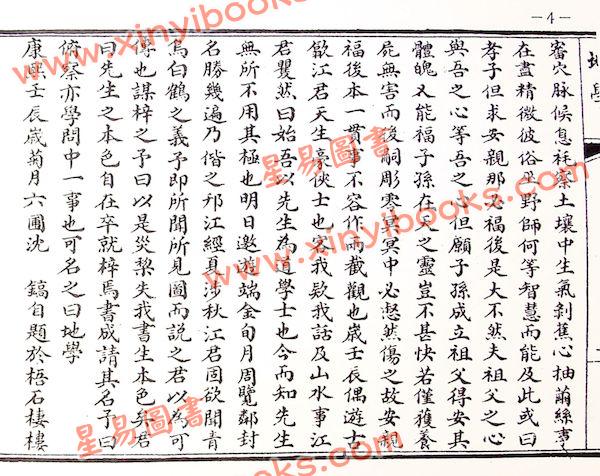 —4—
地學
審穴脉候息耗察土壤中生氣剝蕉心抽繭絲事
在盡精微彼俗巫野師何等智慧而能及此或曰
孝子但求安親那必福後是大不然夫祖父之心
與吾之心等吾之心但願子孫成立祖父得安其
體魄又能福子孫在天之靈豈不甚快若僅獲養
屍無害而後嗣彫零冥冥中必愀然傷之故安親
福後本一貫事不容作兩截觀也歲壬辰偶遊古
歙江君天生豪俠士也客我欵我話及山水事江
君瞿然曰始吾以先生為道學士也今而知先生
無所不用其極也明日邀遊端金旬月周覽鄰封
名勝幾遍乃偕之邗江經真涉秋江君固欲聞青
烏白鶴之義予即所聞所見圖而說之君以為可
傳也謀梓之予曰以是災梨失我書生本色矣君
曰先生之本色自在卒就梓焉書成請其名予曰
俯察亦學問中一事也可名之曰地學
康熙壬辰歲菊月六圃沈 鎬自題於梧石棲樓
www.xinyibooks.com
星易圖書
www.xinyibooks.com
星易圖書
www.xinyibooks.com
星易圖書